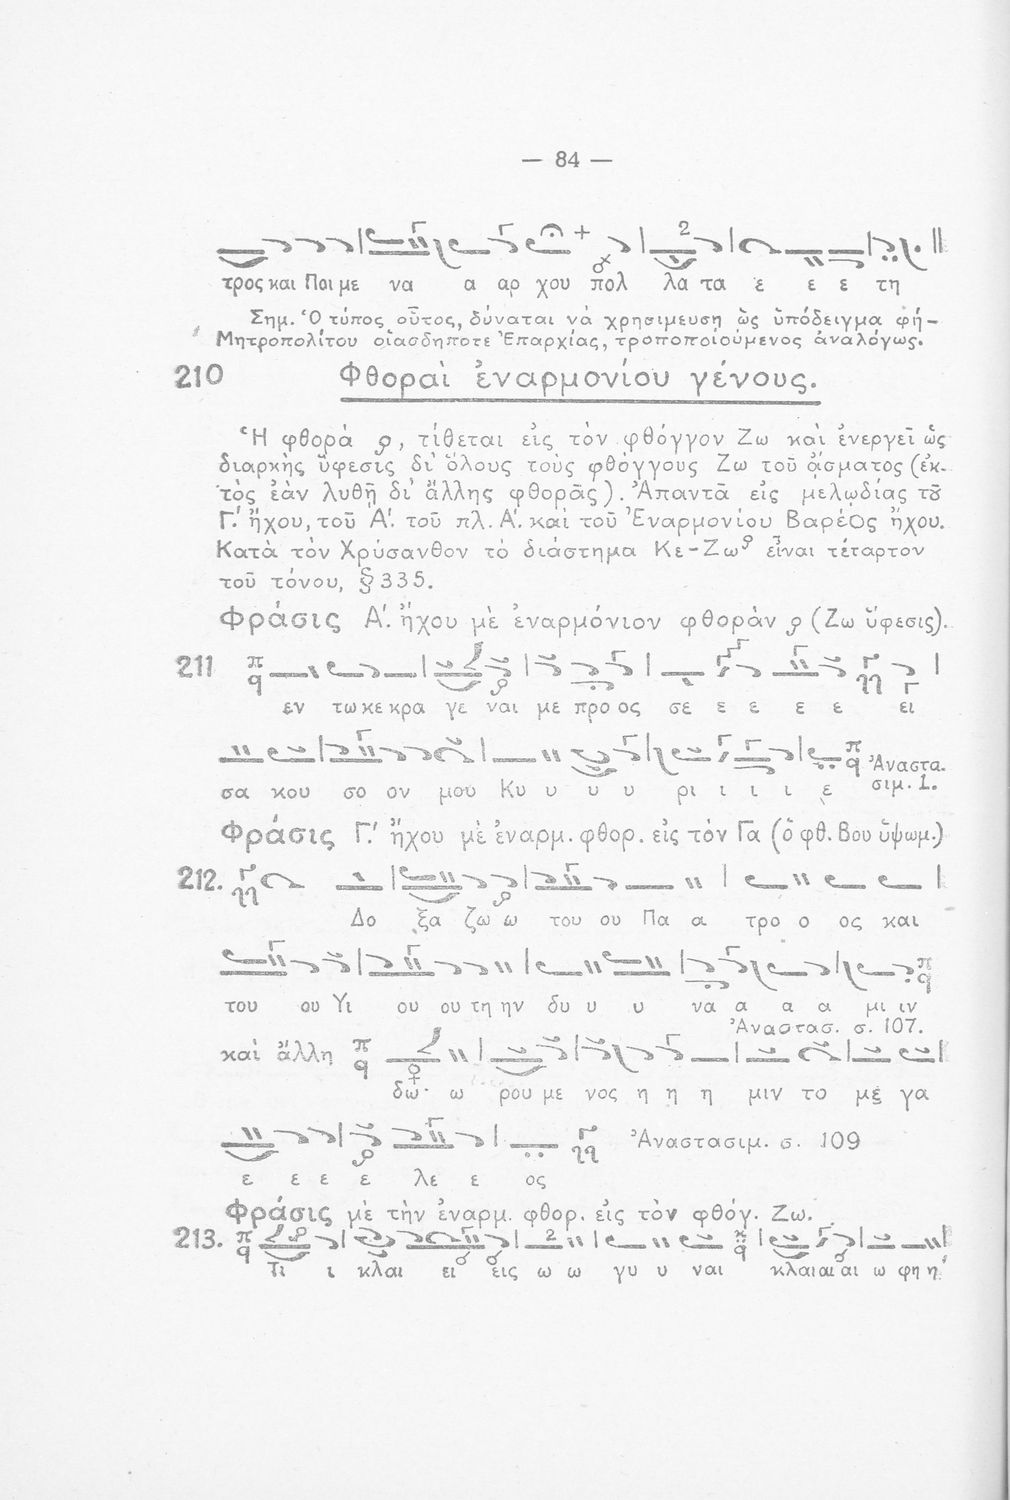 — 84 —
τρος και Ποι με να α αρ χου πολ λα τα ε ε ε τη
Σημ. Ὁ τύπος οὗτος, δύναται νὰ χρησιμεύσῃ ὡς ὑπόδειγμα φή-
Μητροπολίτου οἱασδήποτε Ἐπαρχίας, τροποποιούμενος ἀναλόγως.
210 Φθοραὶ ἐναρμονίου γένους.
Ἡ φθορὰ , τίθεται εἰς τὸν φθόγγον Ζω καὶ ἐνεργεῖ ὡς
διαρκὴς ὕφεσις δι' ὅλους τοὺς φθόγγους Ζω τοῦ ᾄσματος (ἐκ-
τὸς ἐὰν λυθῇ δι' ἄλλης φθορᾶς). Ἀπαντᾶ εἰς μελῳδίας τȣ͂
Γ.' ἤχου, τοῦ Α'. τοῦ πλ. Α'. καὶ τοῦ Ἐναρμονίου Βαρέος ἤχου.
Κατὰ τὸν Χρύσανθον τὸ διάστημα Κε-Ζω εἶναι τέταρτον
τοῦ τόνου, § 335.
Φράσις Α'. ἤχου μὲ ἐναρμόνιον φθορὰν (Ζω ὕφεσις).
211 π q
εν τω κε κρα γε ναι με προ ος σε ε ε ε ε ε ει
σα κου σο ον μου Κυ υ υ υ ρι ι ι ι ε Ἀναστα.
σιμ. 1.
Φράσις Γ.' ἤχου μὲ ἐναρμ. φθορ. εἰς τὸν Γα (ὁ φθ. Βου ὕψωμ.)
212.
Δο ξα ζω ω του ου Πα α τρο ο ος και
του ου Υι ου ου τη ην δυ υ υ να α α α μι ιν
Ἀναστασ. σ. 107.
καὶ ἄλλη π q
δω ω ρου με νος η η η μιν το με γα
Ἀναστασιμ. σ. 109
ε ε ε ε λε ε ος
Φράσις μὲ τὴν ἐναρμ. φθορ. εἰς τὸν φθόγ. Ζω.
213. π q
Τι ι κλαι ει εις ω ω γυ υ ναι κλαι αι αι ω φη η